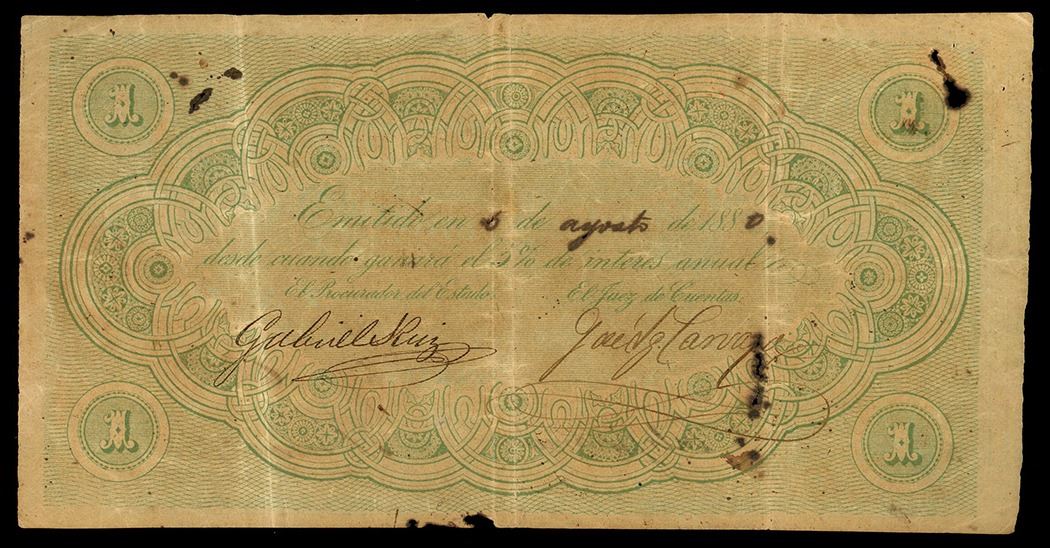 1 1
Emitido en 6 de agosto de 1880
desde cuando ganará el 5% de interes anual
El Procurador del Estado. El Juez de Cuentas.
Gabriel Ruiz
1 1